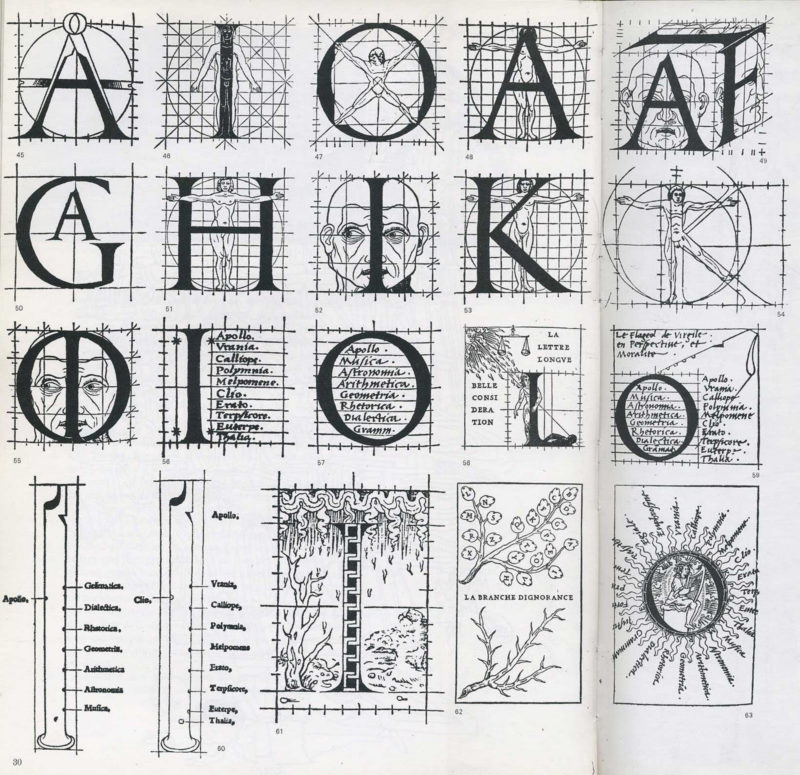 A
I
O
A
A F
45
46
47
48
49
G A
H
I
K
K
50
51
52
53
54
I
Apollo.
Vrania.
Calliope.
Polymnia.
Melpomene.
Clio.
Erato.
Terpsicore.
Euterpe.
Thalia.
O
Apollo.
Musica.
Astronomia.
Arithmetica
Geometria.
Rhetorica.
Dialectica.
Gramm.
LA
LETTRE
LONGVE
BELLE
CONSI
DERA
TION
L
Le Flageol de Virgile
en Perspective, et
Moralite
O
Apollo.
Musica.
Astronomia.
Arithmetica
Geometria.
Rhetorica.
Dialectica
Gramat.
Apollo.
Vrania.
Calliope
Polymnia.
Melpomene
Clio.
Erato.
Terpsicore.
Euterpe.
Thalia.
55
56
57
58
59
Apollo,
Dialectica,
Rhetorica,
Geometria,
Arithmetica
Astronomia
Musica,
Clio,
Apollo,
Vrania,
Calliope,
Polymnia,
Melpomene
Erato,
Terpsicore,
Euterpe,
Thalia,
60
I
61
LA BRANCHE DIGNORANCE
62
O
63
30